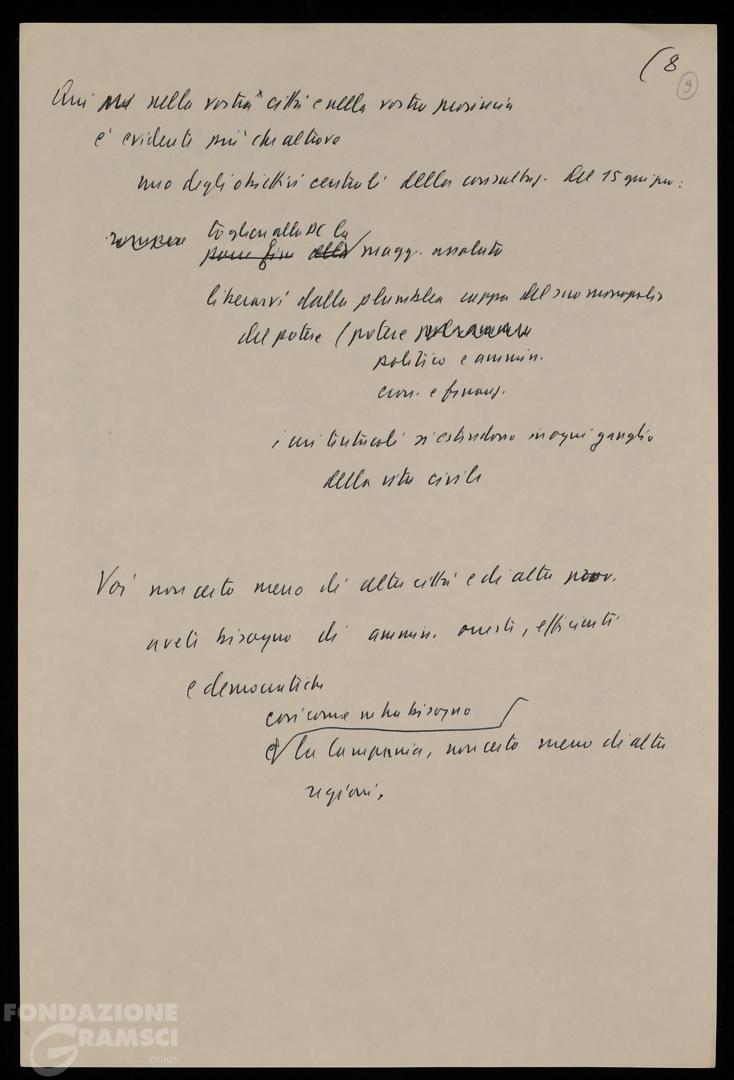 (8
9
Qui nella vostra città e nella vostra provincia
è evidente più che altrove
uno degli obiettivi centrali della consultaz. del 15 giugno:
rompere togliere alla DC la
porre fine alla magg. assoluta
liberarvi dalla plumblea cappa del suo monopolio
del potere (potere
politico e ammin.
econ. e finanz.
i cui tentacoli si estendono in ogni ganglio
della vita civile
Voi non certo meno di altre città e di altre prov.
avete bisogno di ammin. oneste, efficienti
e democratiche
così come ne ha bisogno
e la Campania, non certo meno di altre
regioni.
FONDAZIONE
GRAMSCI
onlus